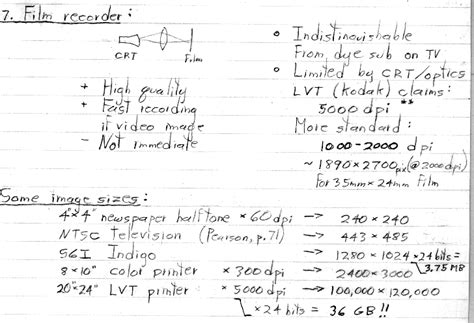 7. Film recorder:
CRT
Film
+ High quality
+ Fast recording
if video made
- Not immediate
• Indistinguishable
From dye sub on TV
• Limited by CRT/optics
LVT (Kodak) claims:
5000 dpi **
More standard:
1000-2000 dpi
~ 1890×2700 pix (@ 2000 dpi)
for 35mm × 24mm Film
Some image sizes:
4"×4" newspaper halftone × 60 dpi → 240×240
NTSC television (Pearson, p.71) → 443×485
SGI Indigo → 1280×1024 ×24 bits = 3.75 MB
8×10" color printer × 300 dpi → 2400×3000
20"×24" LVT printer × 5000 dpi → 100,000×120,000
×24 bits = 36 GB!!